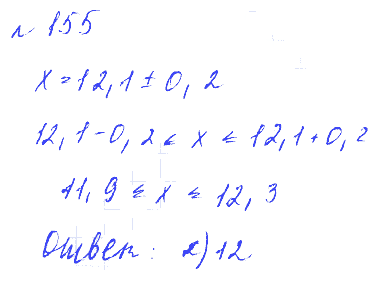 № 155
x = 12,1 ± 0,2
12,1 - 0,2 ≤ x ≤ 12,1 + 0,2
11,9 ≤ x ≤ 12,3
Ответ: г) 12